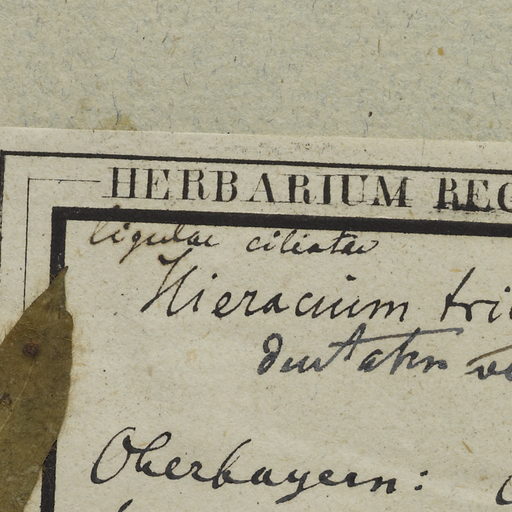 HERBARIUM REG
ligulae ciliatae
Hieracium tri
dentatum
Oberbayern: